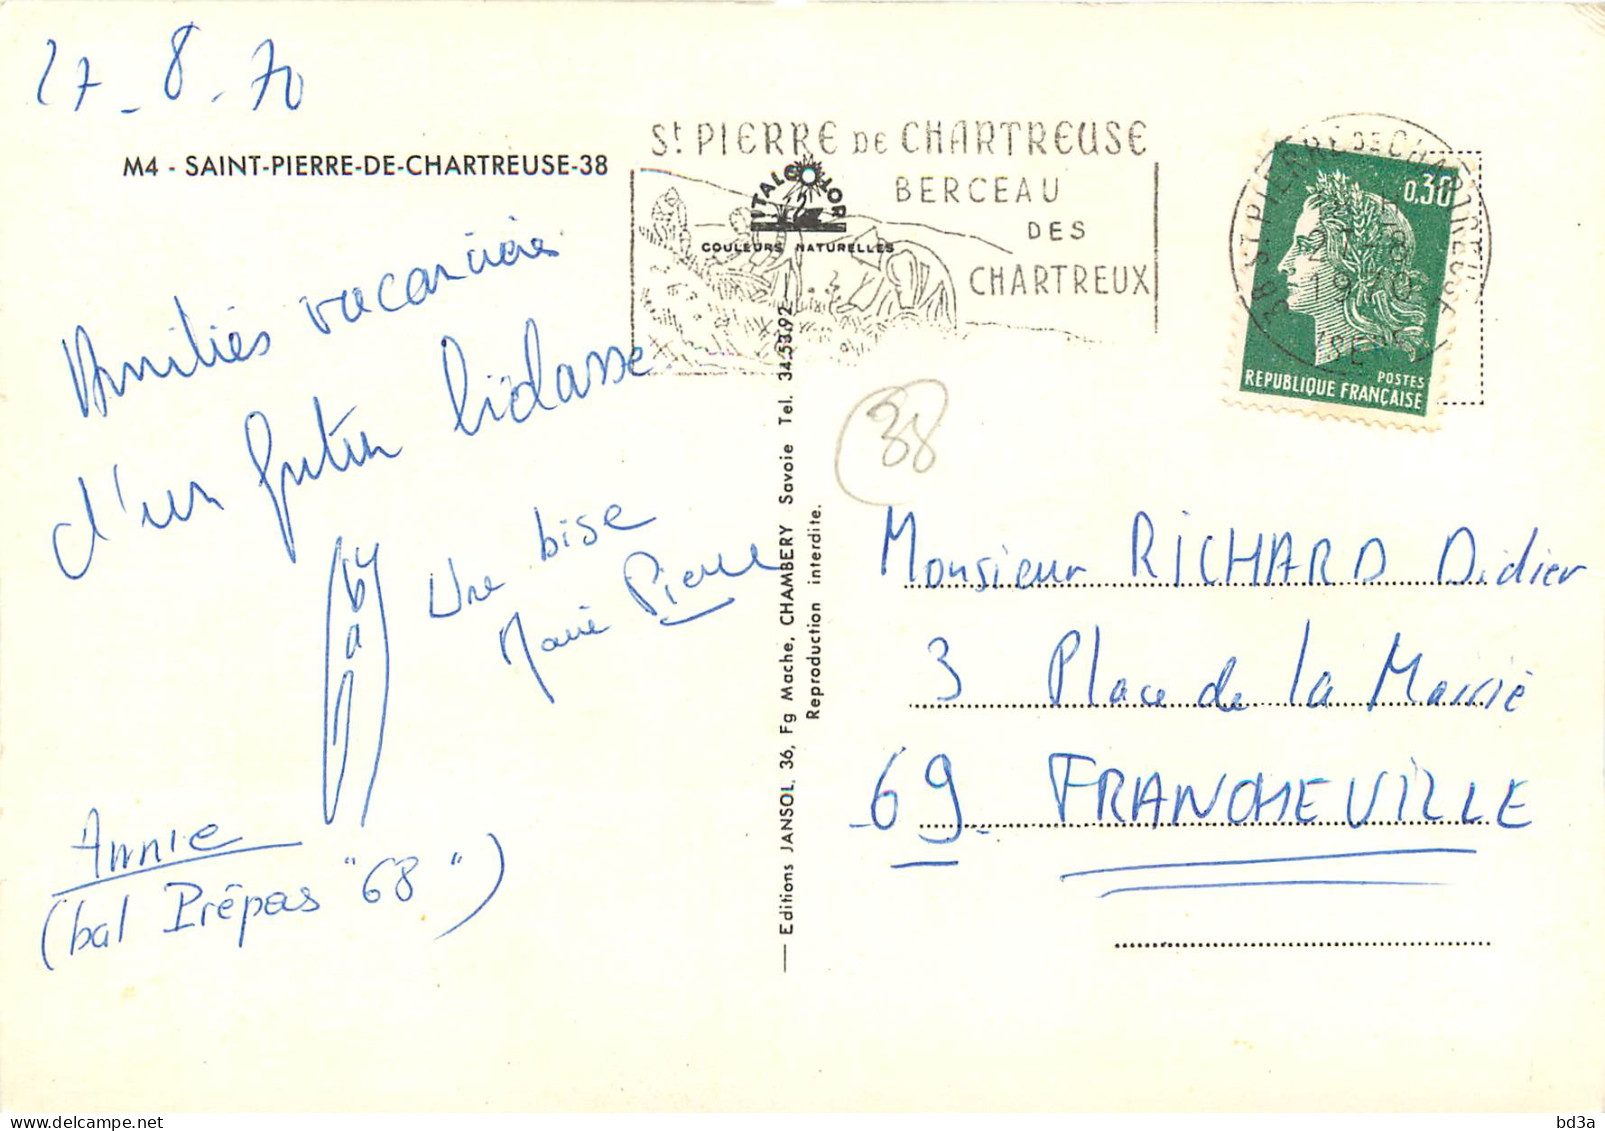 27 - 8 - 70
M4 - SAINT-PIERRE-DE-CHARTREUSE-38
Amitiés vacancières
d'un futur bidasse
Gaby
Une bise
Marie Pierre
Annie
(bal Prépas "68")
St PIERRE DE CHARTREUSE
BERCEAU
DES
CHARTREUX
ITALCOLOR
COULEURS NATURELLES
Editions JANSOL, 36, Fg Maché, CHAMBERY Savoie Tel. 34.53.92
Reproduction interdite.
38 ST PIERRE DE CHARTREUSE
27 - 8
1970
ISERE
0,30
POSTES
REPUBLIQUE FRANÇAISE
38
Monsieur RICHARD Didier
3 Place de la Mairie
69 - FRANCHEVILLE
bd3a